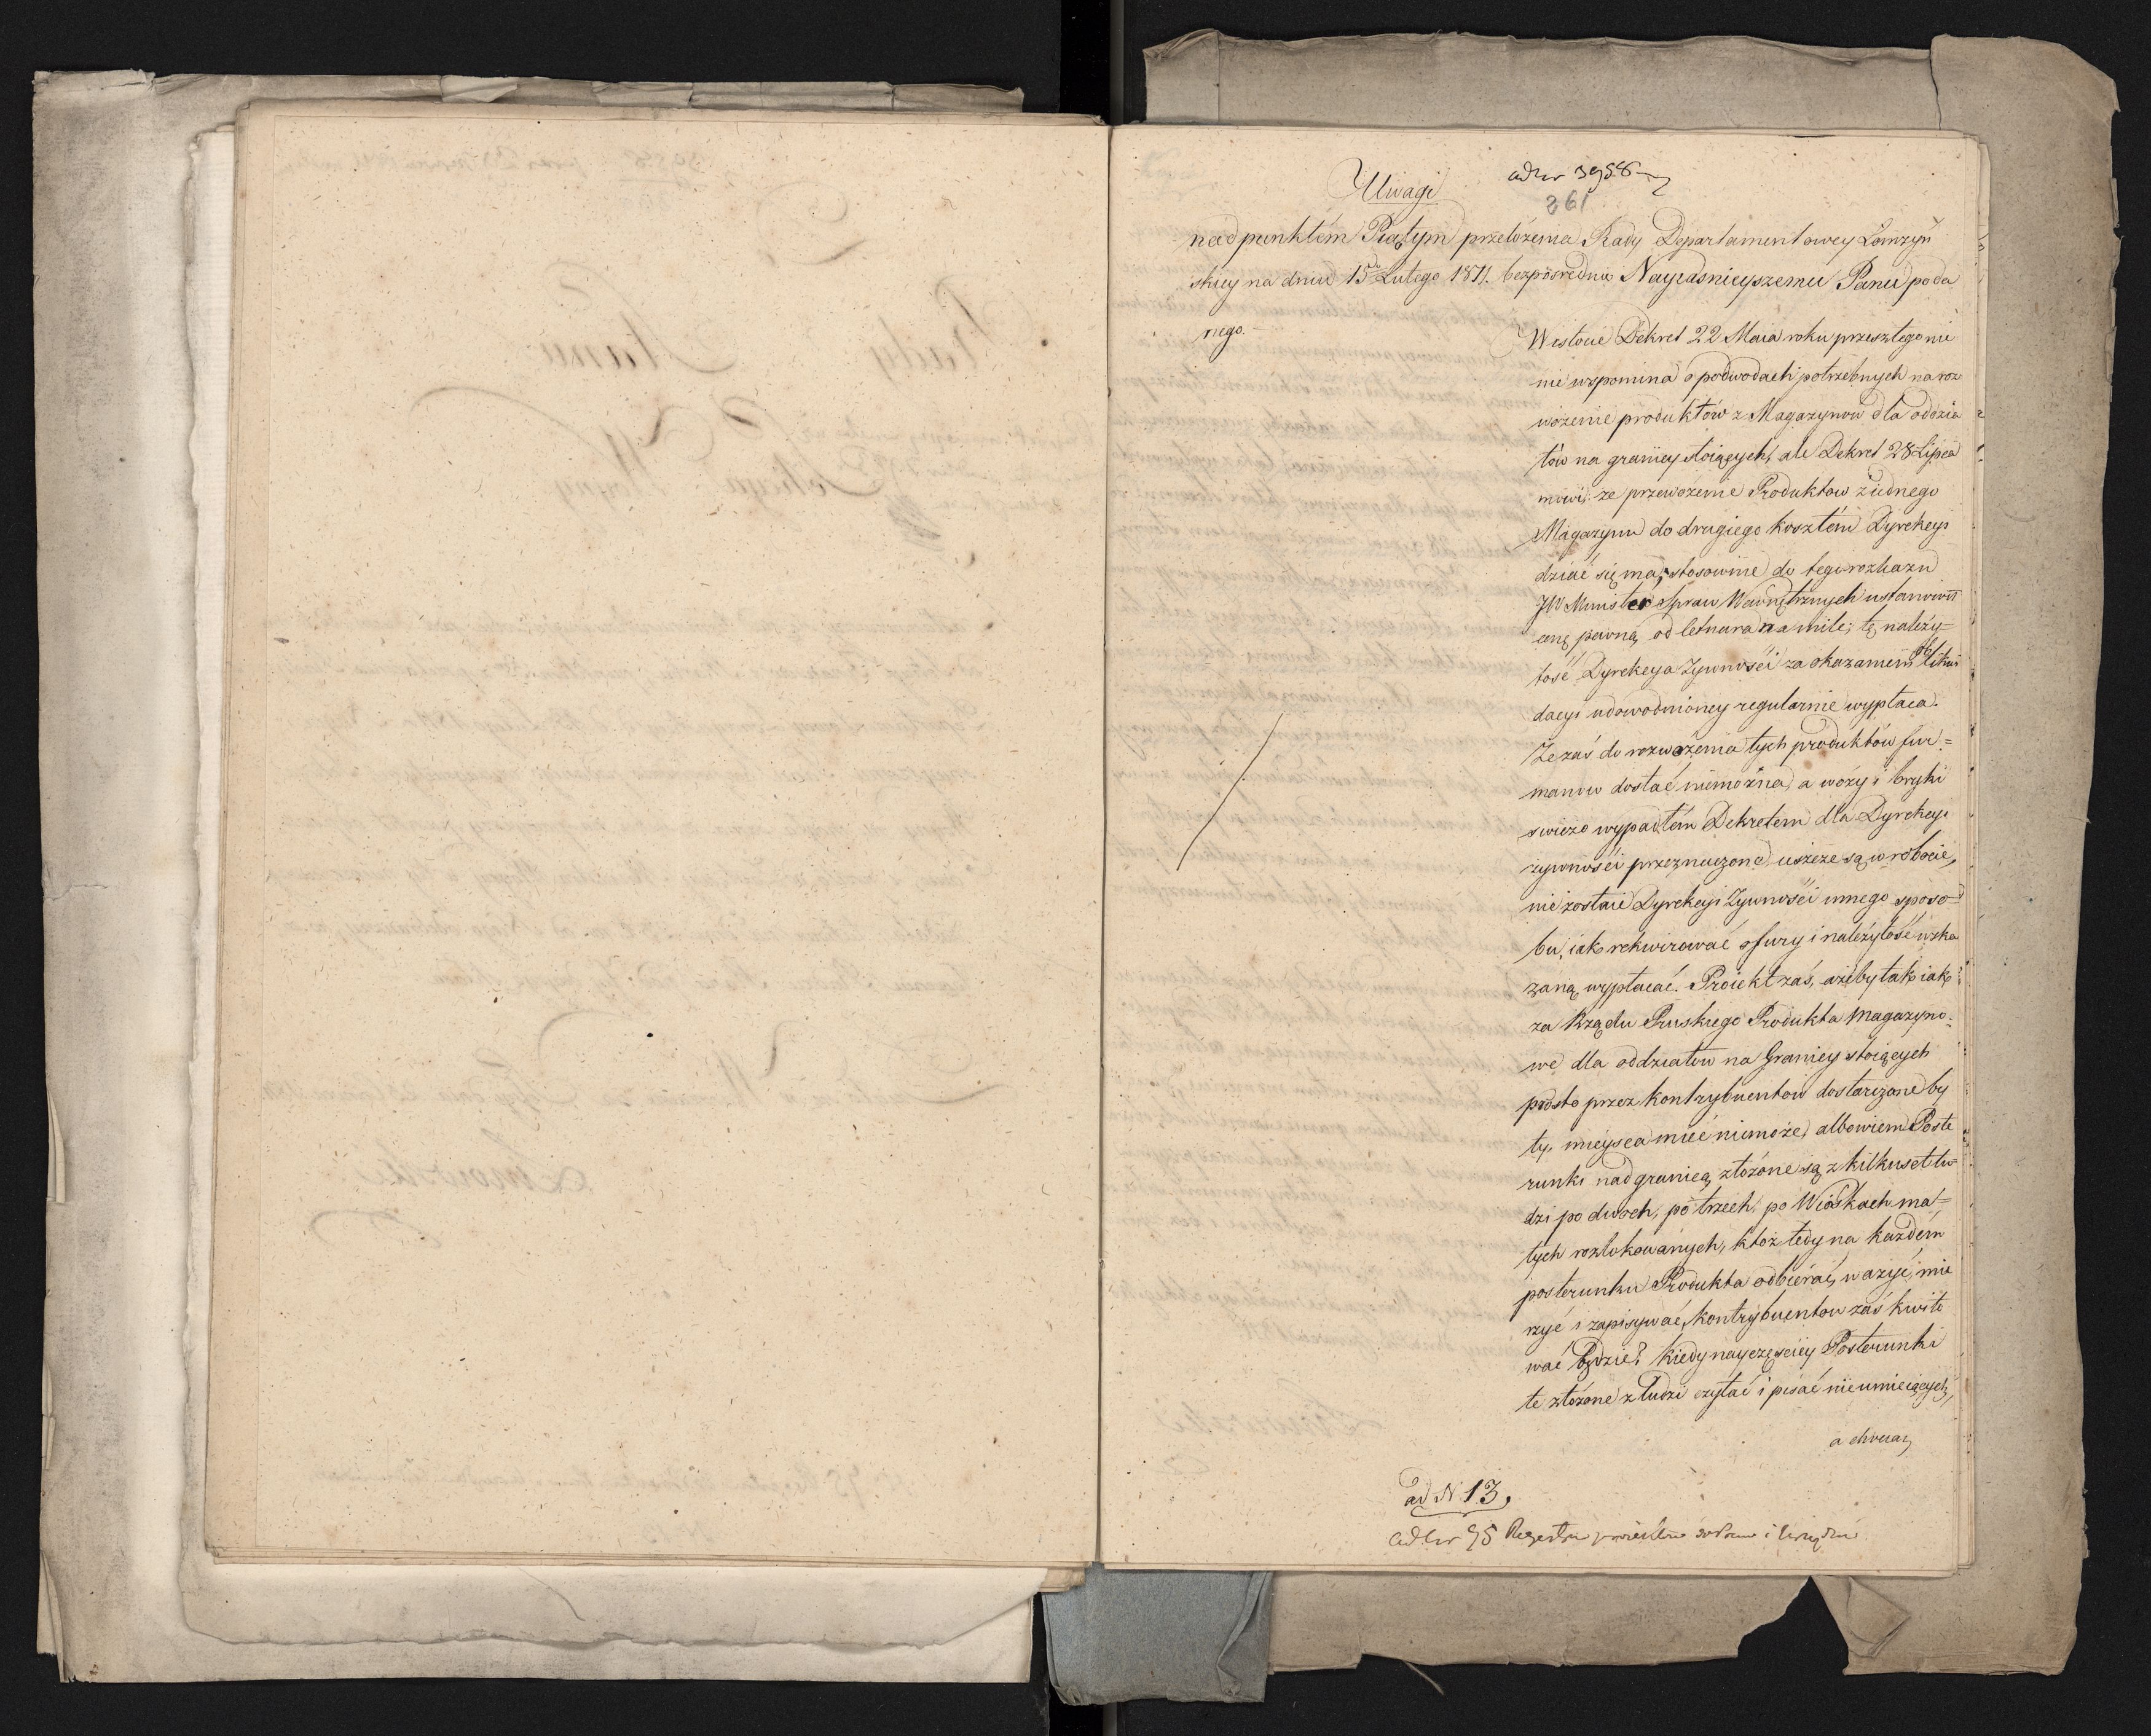 Uwagi
ad Nr 3958
261
nad punktém Piątym przełożenia Rady Departamentowey Łomżyń
skiey na dniu 15 Lutego 1811. bezpośrednie Nayiaśnieyszemu Panu poda
nego.
W istocie Dekret 22 Maia roku przeszłego nie
nie wspomina o podwodach potrzebnych na roz
wożenie produktów z Magazynów dla oddzia
łów na granicy stoiących, ale Dekret 28 Lipca
mówi, że przewożenie Produktow z iednego
Magazynu do drugiego kosztém Dyrekcyi
dziać się ma, stosownie do tego rozkazu
JW Minister Spraw Wewnętrznych ustanowił
cenę pewną od letnara na milę; tę należy=
tość Dyrekcya Żywności za okazaniem likwi
dacyi udowodnioney regularnie wypłaca.
Że zaś do rozwożenia tych produktów fur=
manow dostać niemożna, a wozy i bryki
swieżo wypadłém Dekretem dla Dyrekcyi
żywności przeznaczone, ieszcze są w robocie,
nie zostaie Dyrekcyi Żywności innego sposo=
bu, iak rekwirować o fury i należytość wska
zaną wypłacać. Proiekt zaś, ażeby tak iak
za Rządu Pruskiego Produkta magazyno=
we dla oddziałow na Granicy stoiących
prosto przez kontrybuentow dostarczone by
ły, mieysca mieć niemoże, albowiem Poste
runki nad granicą złożone są z kilkuset lu=
dzi po dwoch, po trzech, po Wioskach ma=
łych rozlokowanych, któż tedy na każdém
posterunku Produkta odbierać, ważyć, mie
rzyć i zapisywać, kontrybuentow zaś kwito
wać będzie? kiedy nayczęściey Posterunki
te złożone z ludzi czytać i pisać nieumieiących,
a chociaż
ad N 13.
ad Nr 95